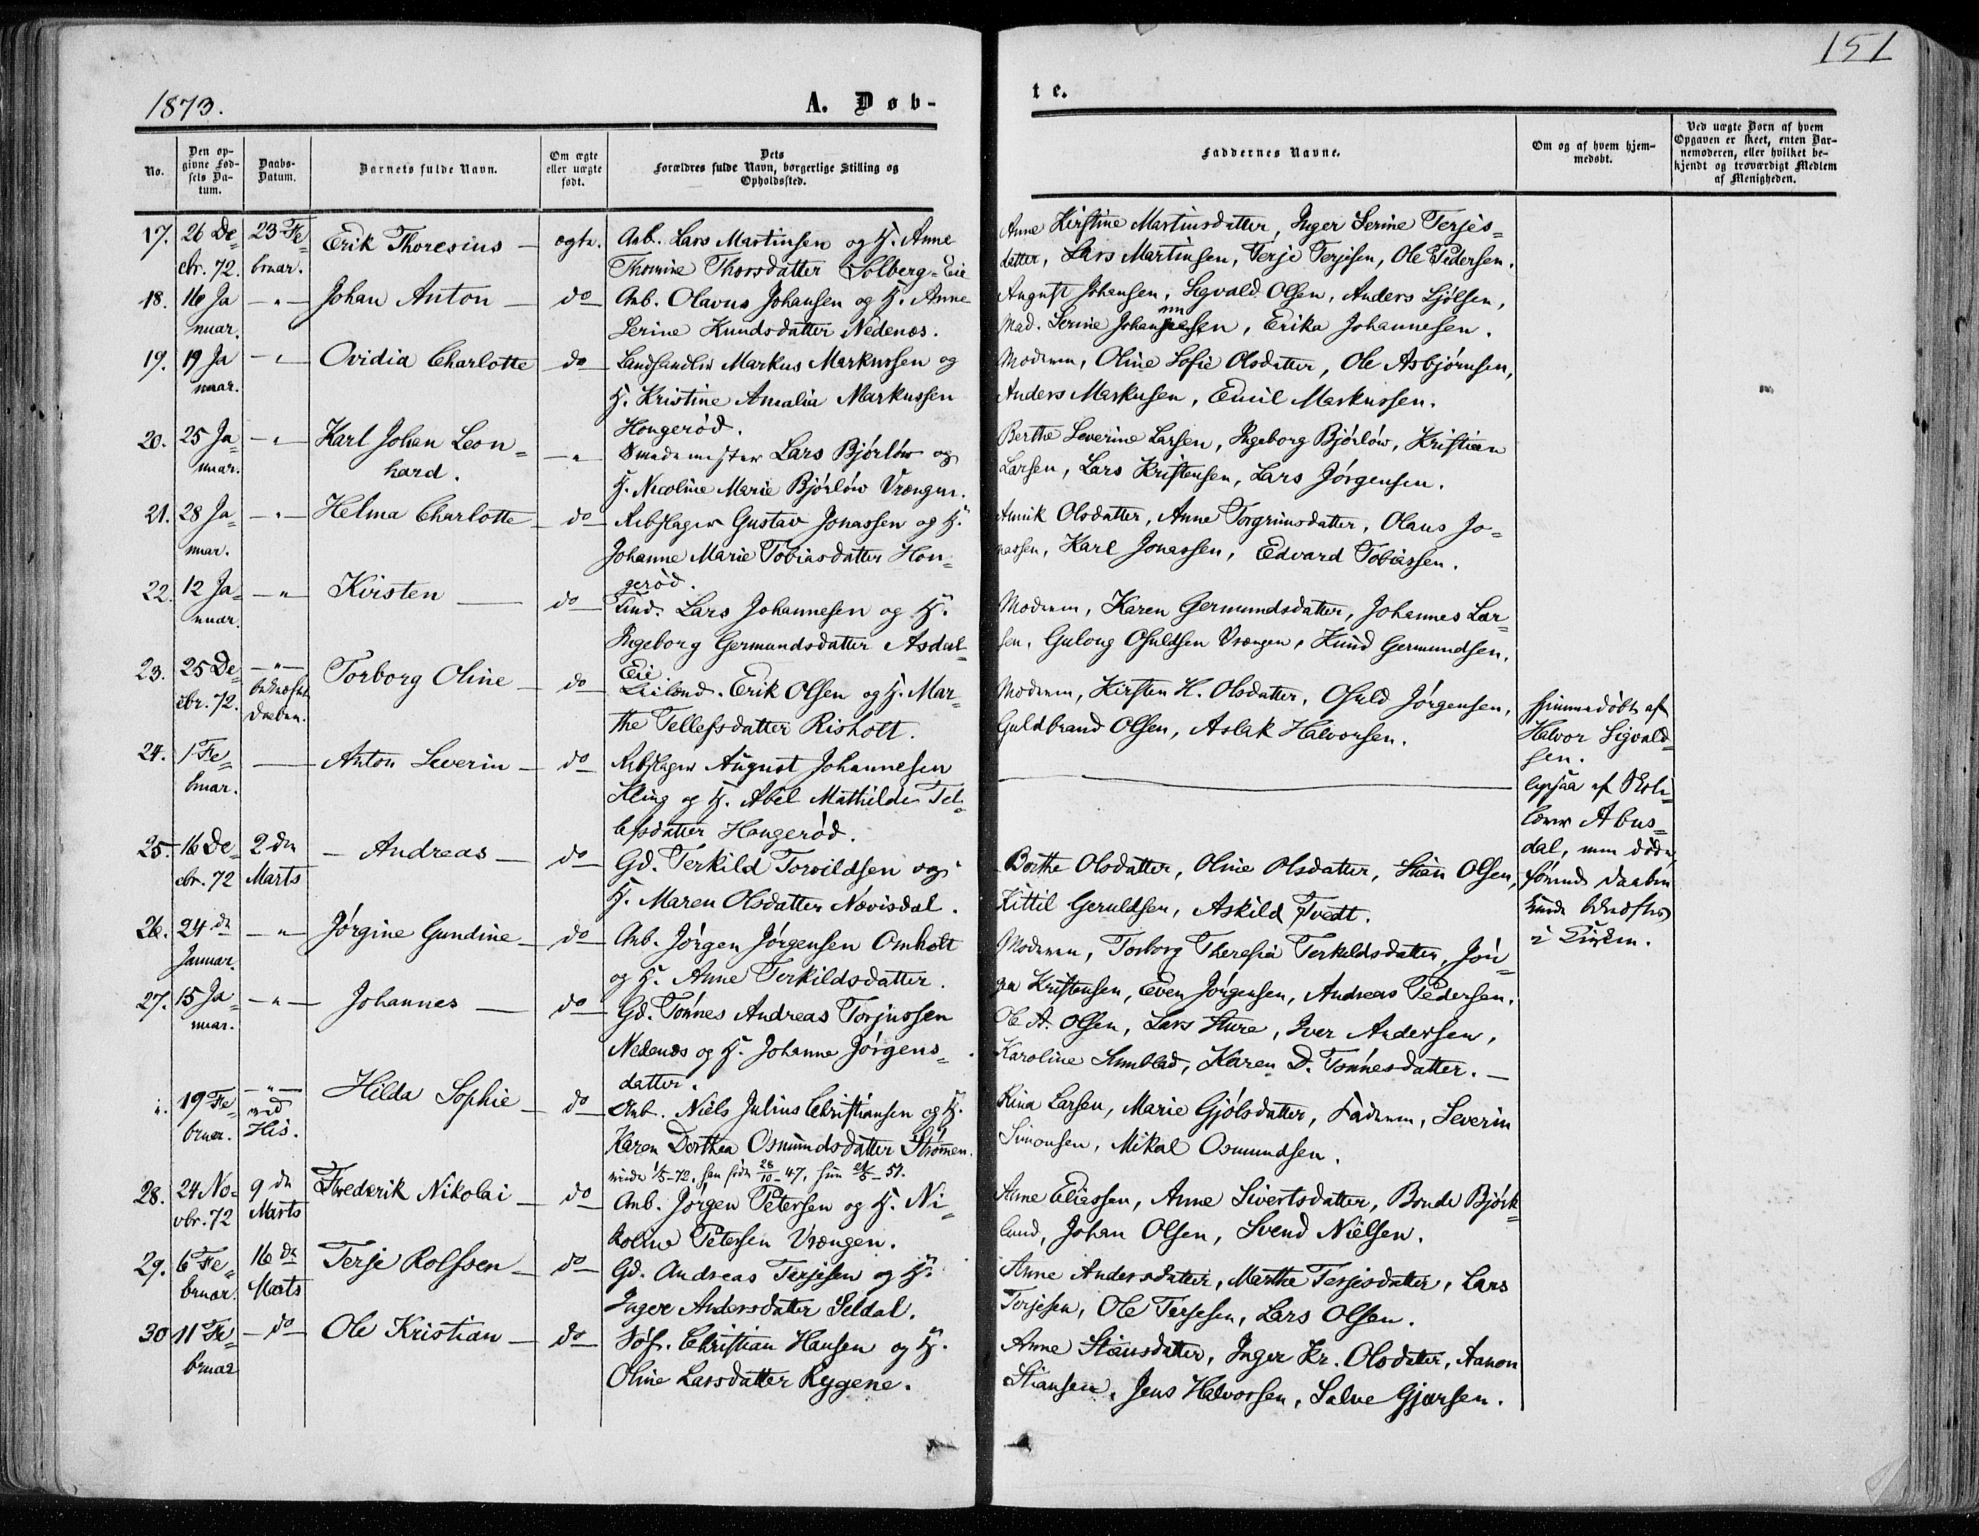 151
1873.
A. Døb-
te.
No.
Den op-
givne Fød-
sels Da-
tum.
Daabs-
Datum.
Barnets fulde Navn.
Om ægte
eller uægte
født.
Dets
Forældres fulde Navn, borgerlige Stilling og
Opholdssted.
Faddernes Navne.
Om og af hvem hjem-
medøbt.
Ved uægte Børn af hvem
Opgaven er skeet, enten Bar-
nemoderen, eller hvilket be-
kjendt og troværdigt Medlem
af Menigheden.
17. 26 De- 23 Fe- Erik Thoresius — ægte. Arb. Lars Martinsen og H. Anne
cbr. 72. bruar. Thomine Thorsdatter Solberg-Eie
Anne Kirstine Martinsdatter, Inger Serine Terjes-
datter, Lars Martinsen, Terje Terjesen, Ole Pedersen.
18. 16 Ja — " — Johan Anton — do — Arb. Olavus Johansen og H. Anne
nuar. Serine Knudsdatter Nedenæs.
August Johansen, Sigvald Olsen, Anders
Mad. Serine Johannesen, Erika Johannesen.
19. 19 Ja — " Ovidia Charlotte — do — Landhandler Markus Markussen og
nuar. H. Kristine Amalia Markussen
Hougerød.
Moderen, Oline Sofie Olsdatter, Ole Asbjørnsen,
Anders Markusen, Emil Markussen.
20. 25 Ja — " — Karl Johan Leon- — " Smedemester Lars Bjørløw og
nuar. hard. H. Nicoline Marie Bjørløw Vrængen.
Berthe Severine Larsen, Ingeborg Bjørløw, Kristian
Larsen, Lars Kristensen, Lars Jørgensen.
21. 28 Ja- — " — Helma Charlotte — do — Rebslager Gustav Jonassen og H.
nuar. Johanne Marie Tobiasdatter Hou-
gerød.
Olsdatter, Anne Torgrimsdatter, Olaus Jo-
nassen, Karl Jonassen, Edvard Tobiassen.
22. 12 Ja- — " — Kirsten — do — Lars Johannesen og H.
nuar. Ingeborg Germundsdatter Asdal-
Eie.
Moderen, Karen Germundsdatter, Johannes Lar-
sen, Gulong Osuldsen Vrængen, Knud Germundsen.
23. 25 De- — " — Torborg Oline — do — Leilænd. Erik Olsen og H. Mar-
cbr. 72. bekræftet
Daaben. the Tellefsdatter Risholt.
Moderen, Kirsten H. Olsdatter, Osuld Jørgensen,
Guldbrand Olsen, Aslak Halvorsen.
hjemmedøbt af
Halvor Sigvald-
sen.
24. 1 Fe- — Anton Severin — do — Rebslager August Johannesen
bruar. Kling og H. Abel Mathilde Tel-
lefsdatter Hougerød.
ligesaa af Skole-
lærer Abus-
dal, men døde,
førend Daaben
kunde bekræftes
i Kirken.
25. 16 De- 2 den — Andreas — do — Gd. Terkild Torvildsen og
cbr. 72 Marts H. Maren Olsdatter Nævisdal.
Berthe Olsdatter, Oline Olsdatter, Stian Olsen,
Kittil Geruldsen, Askild Tvedt.
26. 24 de — " Jørgine Gundine — do — Arb. Jørgen Jørgensen Omholt
Januar. og H. Anne Terkildsdatter.
Moderen, Torborg Theresia Terkeldsdatter, Jør-
gen Kristensen, Even Jørgensen, Andreas Pedersen.
27. 15 Ja- — " — Johannes — do — Gd. Tønnes Andreas Torjussen
nuar. Nedenæs og H. Johanne Jørgens-
datter.
Ole A. Olsen, Lars Sture, Iver Andersen,
Karoline Sundblad, Karen D. Tønnesdatter. —
19 Fe- — " — Hilda Sophie — do — Arb. Niels Julius Christiansen og H.
bruar. ved
His. Karen Dorthea Osmundsdatter Strømmen.
Rina Larsen, Marie Gjølsdatter, Faderen, Severin
Simonsen, Mikal Osmundsen.
28. 24 No- 9 de Frederik Nikolai — do — Arb. Jørgen Petersen og H. Ni-
vbr. 72 Marts koline Petersen Vrængen.
Anne Eliassen, Anne Sivertsdatter, Bernt Bjørk-
lund, Johan Olsen, Svend Nielsen.
29. 6 Fe- 16 de Terje Rolfssen — do — Gd. Andreas Terjesen og H.
bruar. Marts Inger Andersdatter Seldal.
Anne Andersdatter, Marthe Terjesdatter, Lars
Terjesen, Ole Terjesen, Lars Olsen.
30 11 Fe — do — Ole Kristian — do — Søf. Christian Hansen og H.
bruar Oline Larsdatter Rygene.
Anne Stiansdatter, Inger Kr. Olsdatter, Aanon
Stiansen, Jens Halvorsen, Salve Gjærsen.